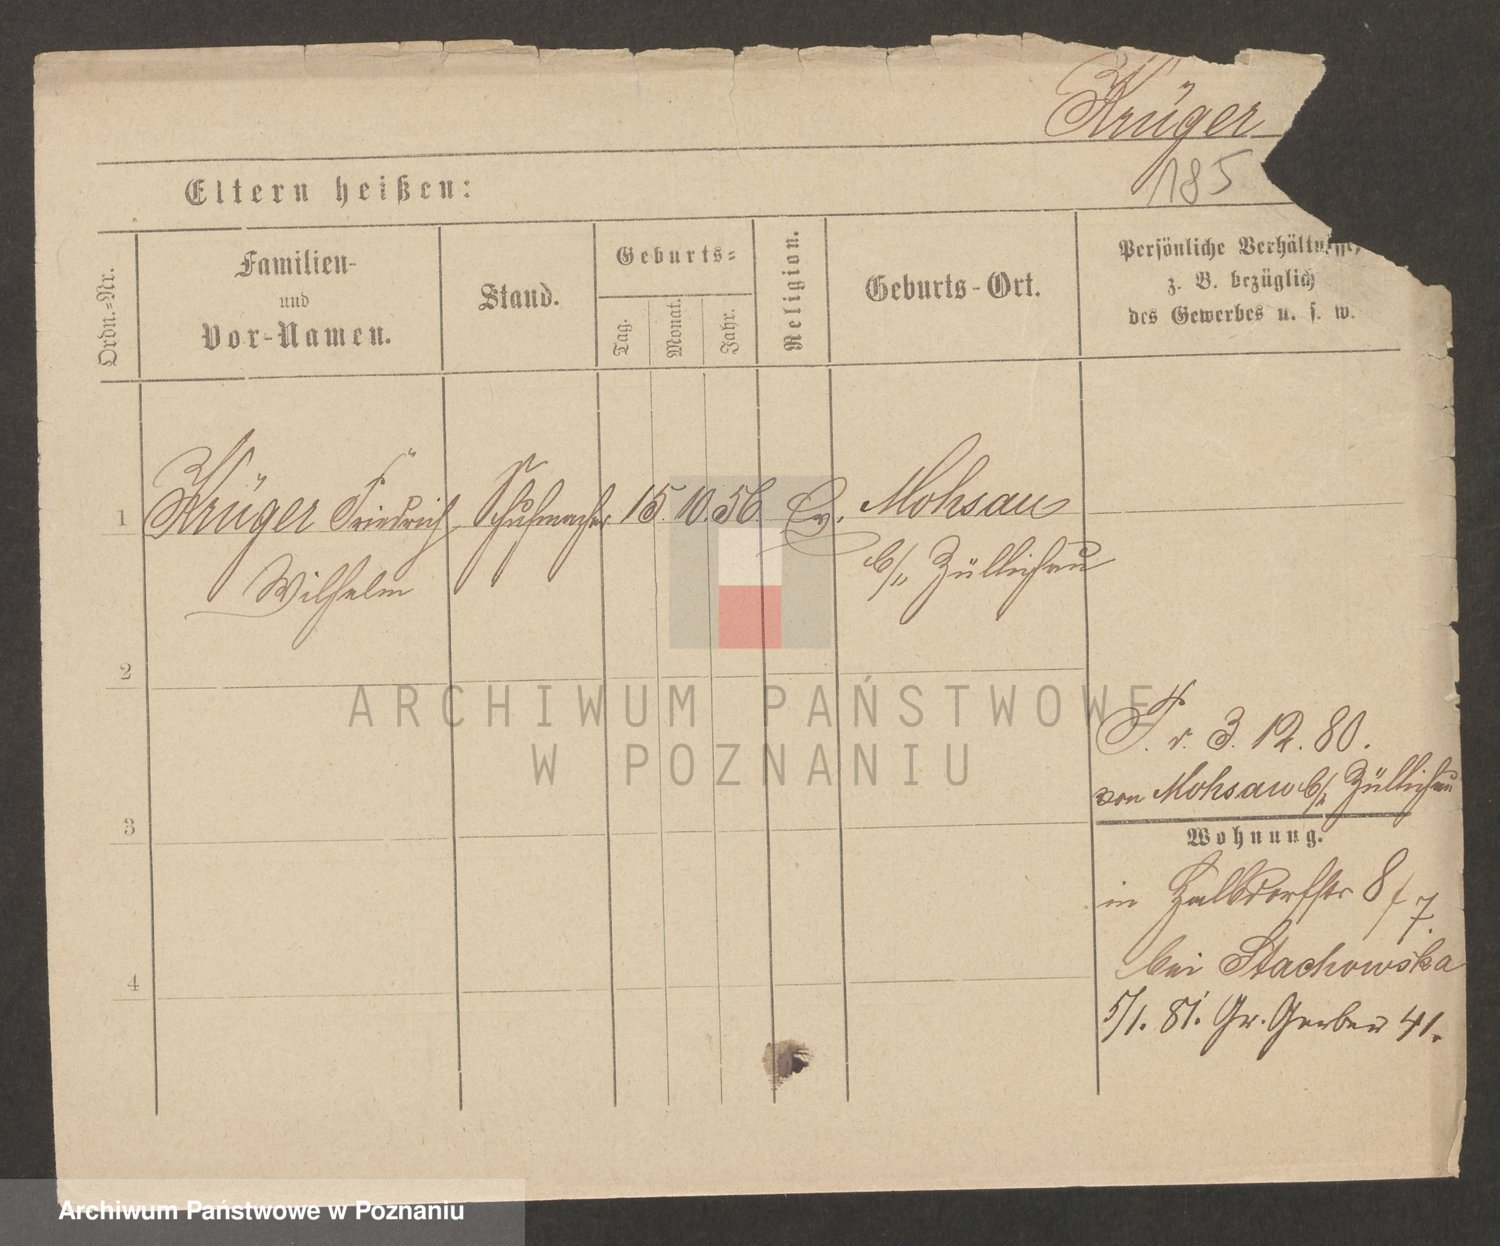 Krüger
185
Eltern heißen:
Ordn.-Nr.
Familien-
und
Vor-Namen.
Stand.
Geburts-
Tag.
Monat.
Jahr.
Religion.
Geburts-Ort.
Persönliche Verhältnisse,
z. B. bezüglich
des Gewerbes u. s. w.
1 Krüger Friedrich Schuhmacher 15. 10. 56. Ev. Mohsau
Wilhelm b/ Züllichau
2
3
4
F. v. 3. 12. 80.
von Mohsau b/ Züllichau
Wohnung.
in Halbdorfstr 8/7.
bei Stachowska
5/1. 81. Gr. Gerber 41.
ARCHIWUM PAŃSTWOWE
W POZNANIU
Archiwum Państwowe w Poznaniu